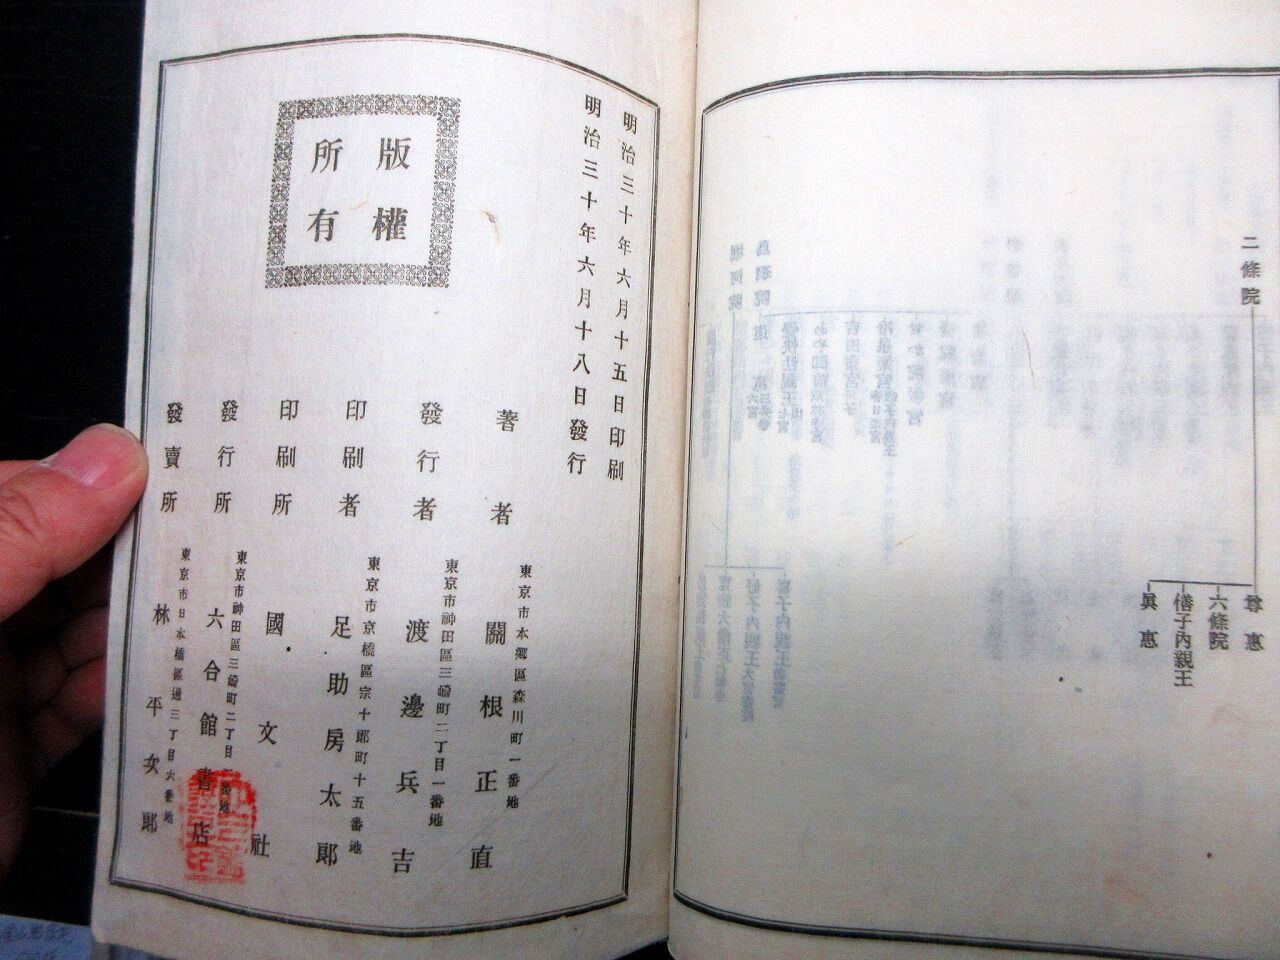 二條院
尊惠
六條院
僐子內親王
眞惠
明治三十年六月十五日印刷
明治三十年六月十八日發行
版權
所有
著者
東京市本郷區森川町一番地
關根正直
發行者
東京市神田區三崎町二丁目一番地
渡邊兵吉
印刷者
東京市京橋區宗十郎町十五番地
足助房太郎
印刷所
國文社
發行所
東京市神田區三崎町二丁目 番地
六合館書店
發賣所
東京市日本橋區通三丁目六番地
林平次郎